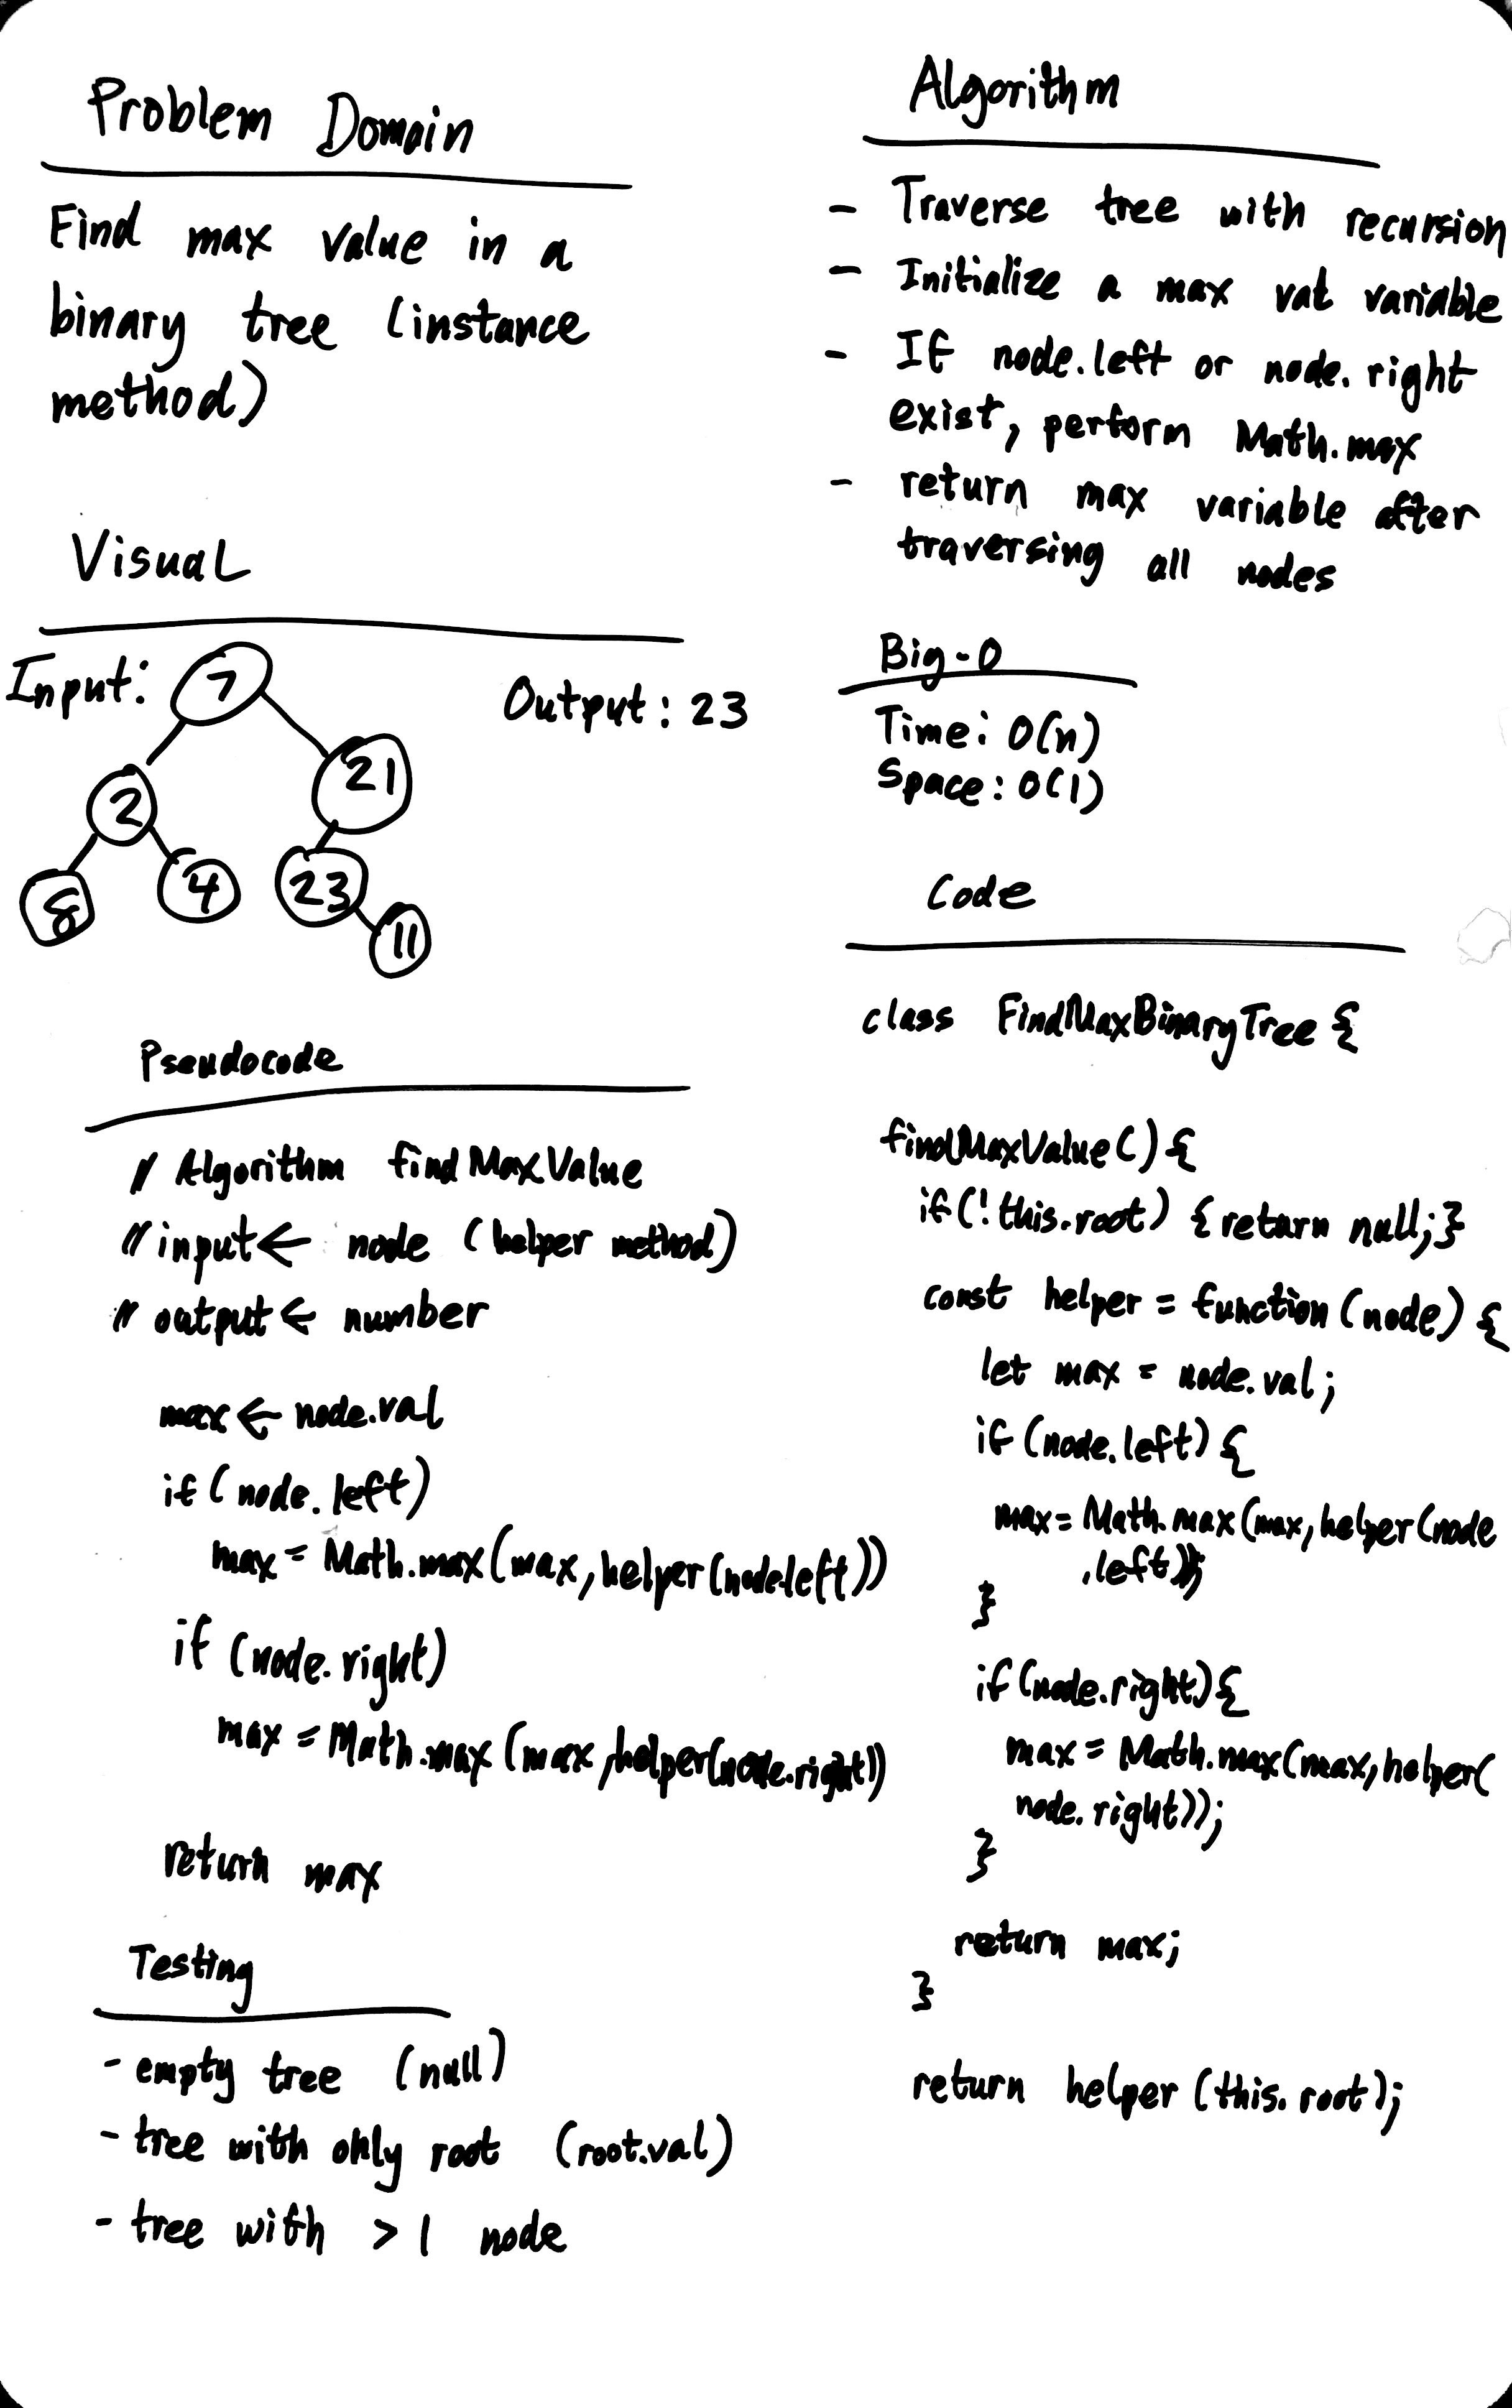 Problem Domain
Find max value in a
binary tree (instance
method)
Visual
Input:
Output: 23
7
2
21
8
4
23
11
Pseudocode
// Algorithm findMaxValue
// input ← node (helper method)
// output ← number
max ← node.val
if (node.left)
max = Math.max(max, helper(node.left))
if (node.right)
max = Math.max(max, helper(node.right))
return max
Testing
- empty tree (null)
- tree with only root (root.val)
- tree with > 1 node
Algorithm
- Traverse tree with recursion
- Initialize a max val variable
- If node.left or node.right
exist, perform Math.max
- return max variable after
traversing all nodes
Big-O
Time: O(n)
Space: O(1)
Code
class FindMaxBinaryTree {
findMaxValue() {
if(!this.root) {return null;}
const helper = function(node) {
let max = node.val;
if (node.left) {
max = Math.max(max, helper(node
.left));
}
if(node.right){
max = Math.max(max, helper(
node.right));
}
return max;
}
return helper(this.root);